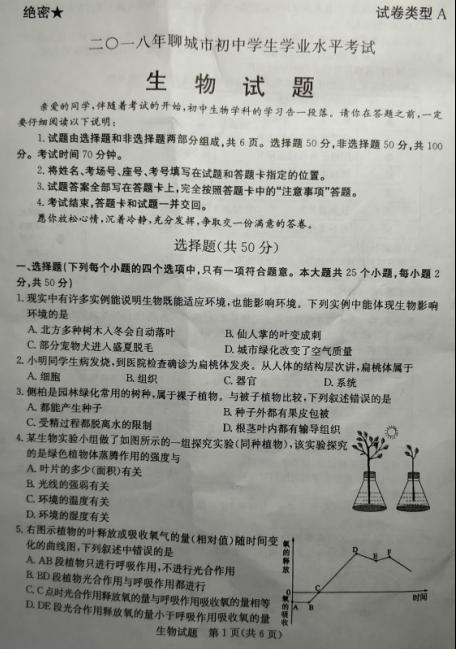 绝密★ 试卷类型 A
二〇一八年聊城市初中学生学业水平考试
生 物 试 题
亲爱的同学,伴随着考试的开始,初中生物学科的学习告一段落。请你在答题之前,一定
要仔细阅读以下说明:
1.试题由选择题和非选择题两部分组成,共 6 页。选择题 50 分,非选择题 50 分,共 100
分。考试时间 70 分钟。
2.将姓名、考场号、座号、考号填写在试题和答题卡指定的位置。
3.试题答案全部写在答题卡上,完全按照答题卡中的“注意事项”答题。
4.考试结束,答题卡和试题一并交回。
愿你放松心情,沉着冷静,充分发挥,争取交一份满意的答卷。
选择题(共 50 分)
一、选择题(下列每个小题的四个选项中,只有一项符合题意。本大题共 25 个小题,每小题 2
分,共 50 分)
1.现实中有许多实例能说明生物既能适应环境,也能影响环境。下列实例中能体现生物影响
环境的是
A.北方多种树木入冬会自动落叶 B.仙人掌的叶变成刺
C.部分宠物犬进入盛夏脱毛 D.城市绿化改变了空气质量
2.小明同学生病发烧,到医院检查确诊为扁桃体发炎。从人体的结构层次讲,扁桃体属于
A.细胞 B.组织 C.器官 D.系统
3.侧柏是园林绿化常用的树种,属于裸子植物。与被子植物比较,下列叙述错误的是
A.都能产生种子 B.种子外都有果皮包被
C.受精过程都脱离水的限制 D.根茎叶内都有输导组织
4.某生物实验小组做了如图所示的一组探究实验(同种植物),该实验探究
的是绿色植物体蒸腾作用的强度与
A.叶片的多少(面积)有关
B.光线的强弱有关
C.环境的温度有关
D.环境的湿度有关
5.右图示植物的叶释放或吸收氧气的量(相对值)随时间变
化的曲线图,下列叙述中错误的是
A.AB 段植物只进行呼吸作用,不进行光合作用
B.BD 段植物光合作用与呼吸作用都进行
C.C 点时光合作用释放氧的量与呼吸作用吸收氧的量相等
D.DE 段光合作用释放氧的量小于呼吸作用吸收氧的量
氧的释放
D
E F
0 C 时间
A B
氧的吸收
生物试题 第 1 页(共 6 页)